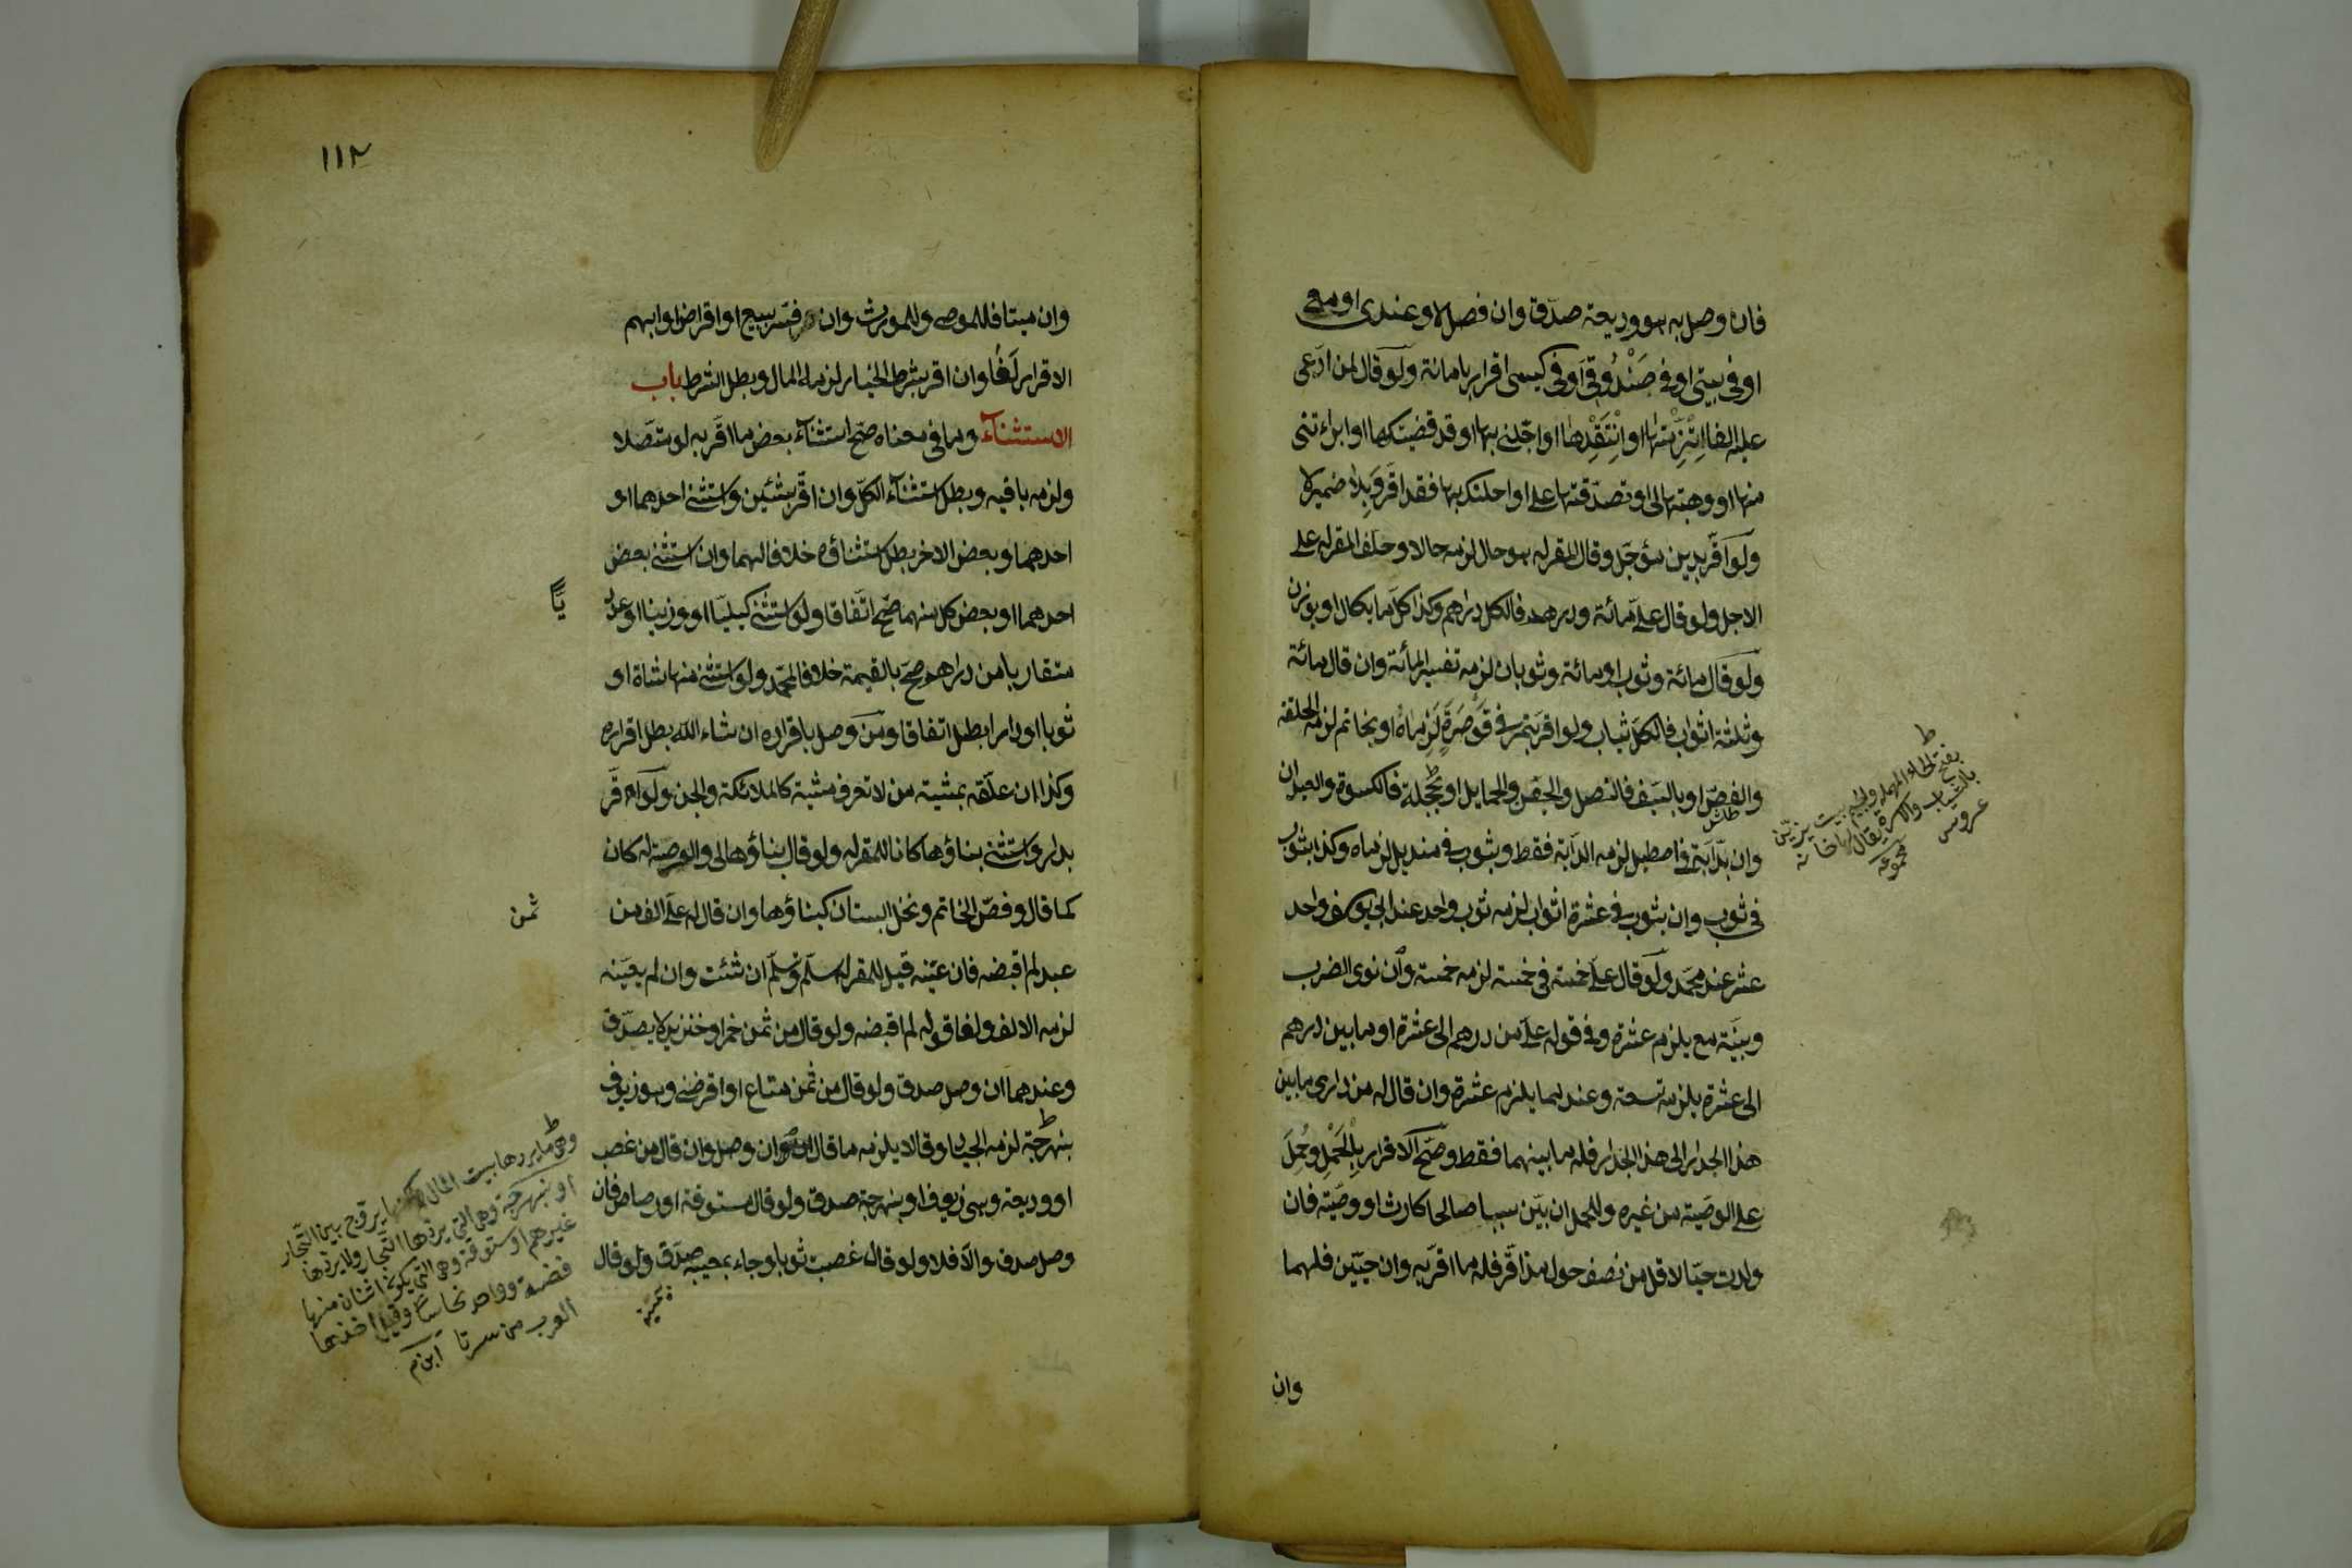 فان وصل به هو وديعة صدّق وان فصل لا وعندى او معى
او فى بيتى او فى صَنْدُوقى اَو فى كيسى اقرار بامانة ولو قال لمن ادّعى
عليه الفا اِتَّزِنْها او اِنْتَقِدْها او اجّلنى بها او قد قضيتكها او ابراءتنى
منها او وهبتها لى او تصدّقتها على او احلتك بها فقد اقَرّ وَبِلا ضمير لا
ولو اقرّ بدين مؤجّل وقال المقر له هو حال لزمه حالا وحلف المقر له على
الاجل ولو قال علىّ مائة ودرهم فالكل دراهم وكذا كلّ ما يكال او يوزن
ولو قال مائة وثوب او مائة وثوبان لزمه تفسير المأئة وان قال مائة
وثلثة اثواب فالكلّ ثياب ولو اقر بتمر فى قَوصَرَةٍ لَزِماهُ او بخاتم لزمه الحلقة
والفصّ او بالسّيف فالنصل والجفن والحمايل او بحَجلة فالكسوة والعيدان
وان بدّابّة فى اصطبل لزمه الدّابّة فقط وبثوب فى منديل لزماه وكذا بثوب
فى ثوب وان بثوب فى عشرة اثواب لزمه ثوب واحد عند ابى يوسف واحد
عشر عند محمّد ولو قال علىّ خمسة فى خمسة لزمه خمسة وان نوى الضرب
وبنيّة مع يلزم عشرة وفى قوله علىّ من درهم الى عشرة او ما بين درهم
الى عشرة يلزمه تسعة وعندهما يلزم عشرة وان قال له من دارى ما بين
هذا الجدار الى هذا الجدار فله ما بينهما فقط وصّح الاقرار بِالْحَمْلِ وحُمِلَ
على الوصيّة من غيره وللحمل ان بيّن سببا صالحا كارث او وصيّة فان
ولدت حيّا لاقل من نصف حول مذ اقّر فله ما اقرّ به وان حيّين فلهما
وان
بفتح الحاء المهملة والجيم بيت يزيّن
بالثياب والاسرة يقال
عروس
١١٢
وان ميتا فللموصى وللمورث وان فسّر ببيع او اقراض او ابهم
الاقرار لَغُا وان اقر بشرط الخيار لزمه المال وبطل الشرط باب
الاستثناء وما فى معناه صّح استثناء بعض ما اقّر به لو متّصلا
ولزمه باقيه وبطل استثناء الكلّ وان اقّر بشئين واستثنى احدهما او
احدهما وبعض الاخر بطل استثناؤه خلافا لهما وان استثنى بعض
احدهما او بعض كل منهما صّح اتّفاقا ولو استثنى كيليّا او وزنيا او عدد
يًّا
متقاربا من دراهم صّح بالقيمة خلافا لمحمّد ولو استثنى منها شاة او
ثوبا او دارا بطل اتفاقا ومن وصل باقراره ان شاء اللّه بطل اقراره
وكذا ان علّقه بمشية من لا تعرف مشية كالملائكة والجن ولو اقّر
بدار واستثنى بناؤها كانا للمقر له ولو قال بناؤها لى والعرصة له كان
كما قال وفصّ الخاتم ونخل البستان كبناؤها وان قال له علىّ الف من
ثمن
عبد لم اقبضه فان عيّنه قيل للمقر له سلّم وتسلّم ان شئت وان لم يعيّنه
لزمه الالف ولغا قوله لم اقبضه ولو قال من ثمن خمر او خنزير لا يصدّق
وعندهما ان وصل صدق ولو قال من ثمن متاع او اقرضنى وهو زيوف
بنهرجة لزمه الجياد وقالا يلزمه ما قال ان وصل وان قال من غصب
او وديعة وهى زيوف او بنهرجة صدق ولو قال ستوقة او رصاص فان
وصل صدق والّا فلا ولو قال غصبت ثوبا وجاء بمعيب صدّق ولو قال
وهى ما يردها بيت المال يروج بين التّجار
او بنهرجة وهى التى يردّها التّجار ولا يردّها
غيرهم او ستوقة وهى التى يكون اثنان منها
فضة وواحد نحاسا وقيل اخذها
العرب من سرتا